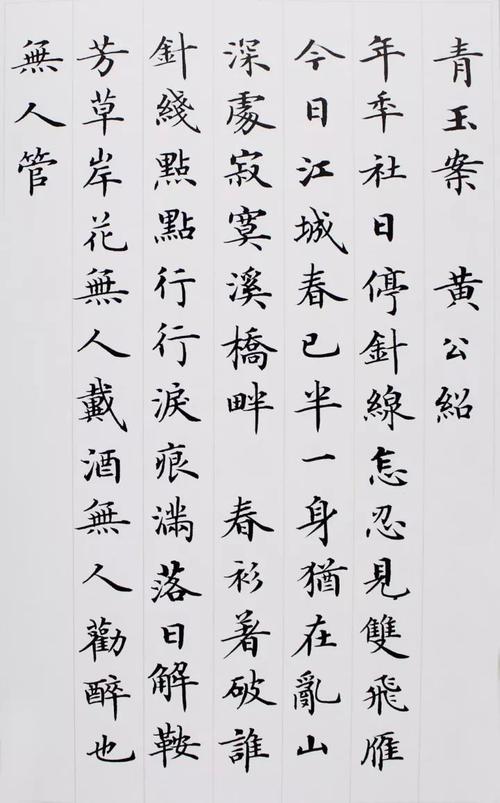 青玉案 黃公紹
年年社日停針線怎忍見雙飛雁
今日江城春已半一身猶在亂山
深處寂寞溪橋畔 春衫著破誰
針綫點點行行淚痕滿落日解鞍
芳草岸花無人戴酒無人勸醉也
無人管